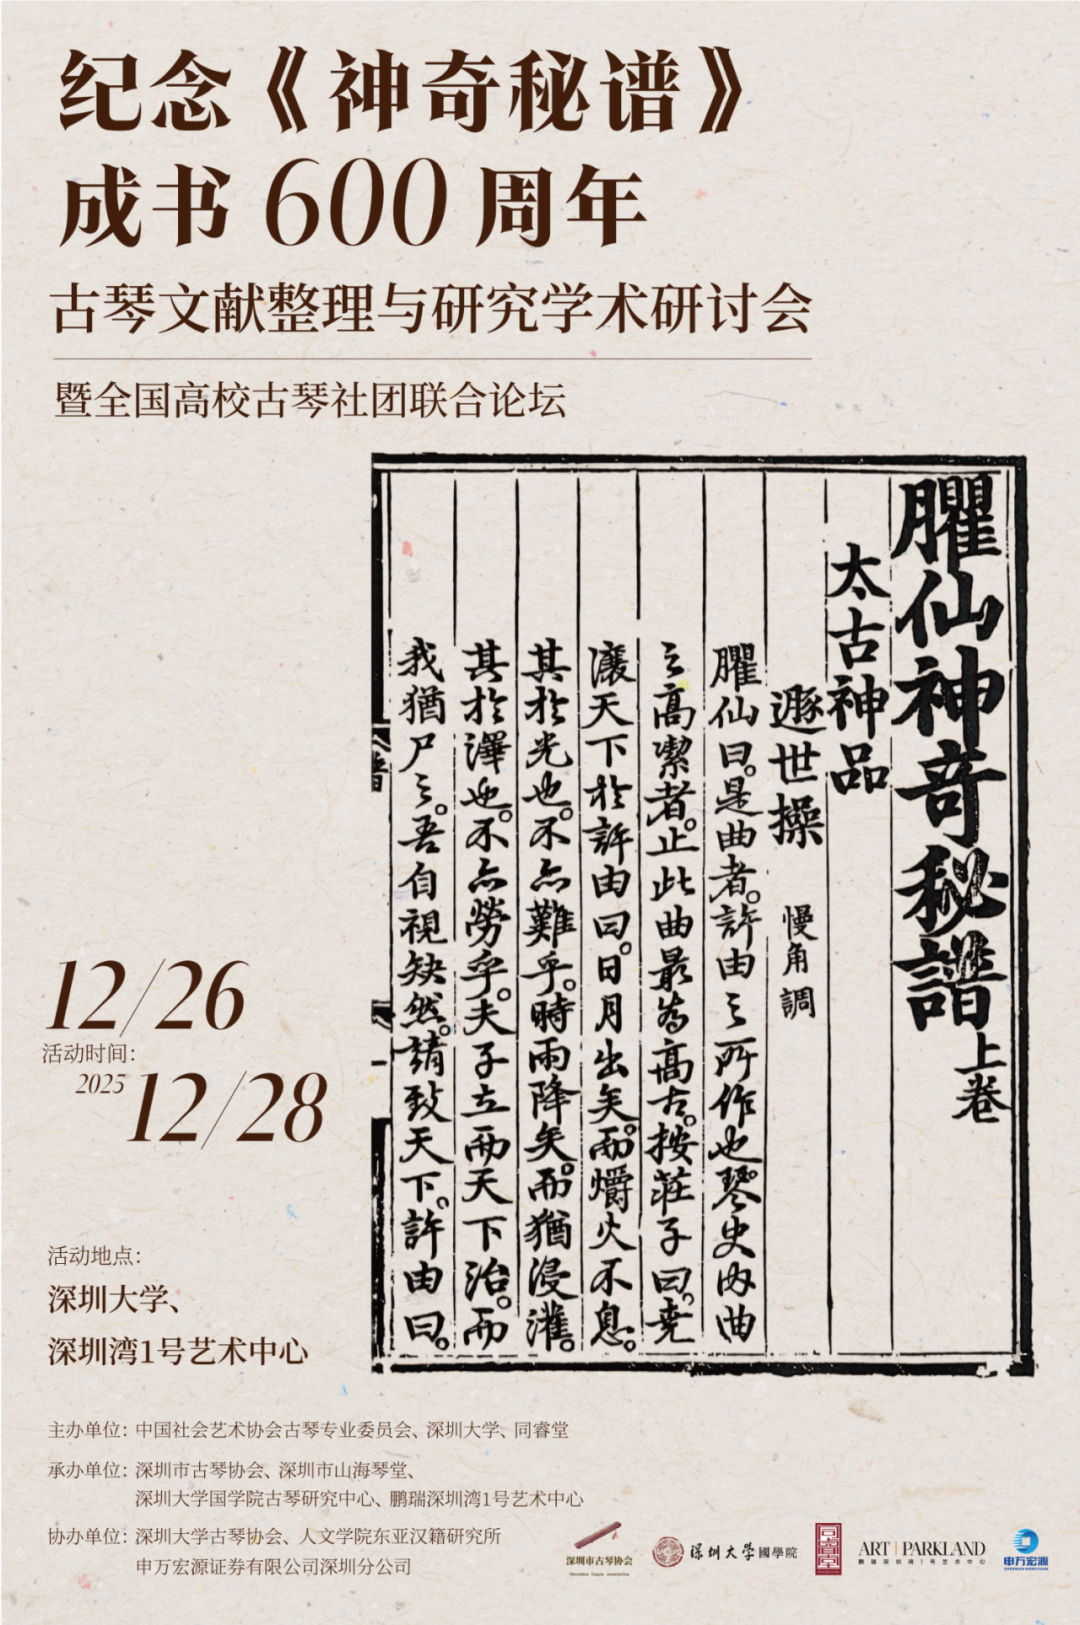 纪念《神奇秘谱》
成书600周年
古琴文献整理与研究学术研讨会
暨全国高校古琴社团联合论坛
臞仙神奇秘譜上卷
太古神品
遯世操 慢角調
臞仙曰。是曲者。許由之所作也。琴史內曲
之高潔者。止此曲最為高古。按莊子曰。堯
讓天下於許由曰。日月出矣。而爝火不息。
其於光也。不亦難乎。時雨降矣。而猶浸灌。
其於澤也。不亦勞乎。夫子立而天下治。而
我猶尸之。吾自視缺然。請致天下。許由曰。
12/26
活动时间：
2025 12/28
活动地点：
深圳大学、
深圳湾1号艺术中心
主办单位：中国社会艺术协会古琴专业委员会、深圳大学、同睿堂
承办单位：深圳市古琴协会、深圳市山海琴堂、
深圳大学国学院古琴研究中心、鹏瑞深圳湾1号艺术中心
协办单位：深圳大学古琴协会、人文学院东亚汉籍研究所
申万宏源证券有限公司深圳分公司
深圳市古琴协会
Shenzhen Guqin Association
深圳大学國學院
同睿堂
ART PARKLAND
鹏瑞深圳湾1号艺术中心
申万宏源
SHENWAN HONGYUAN